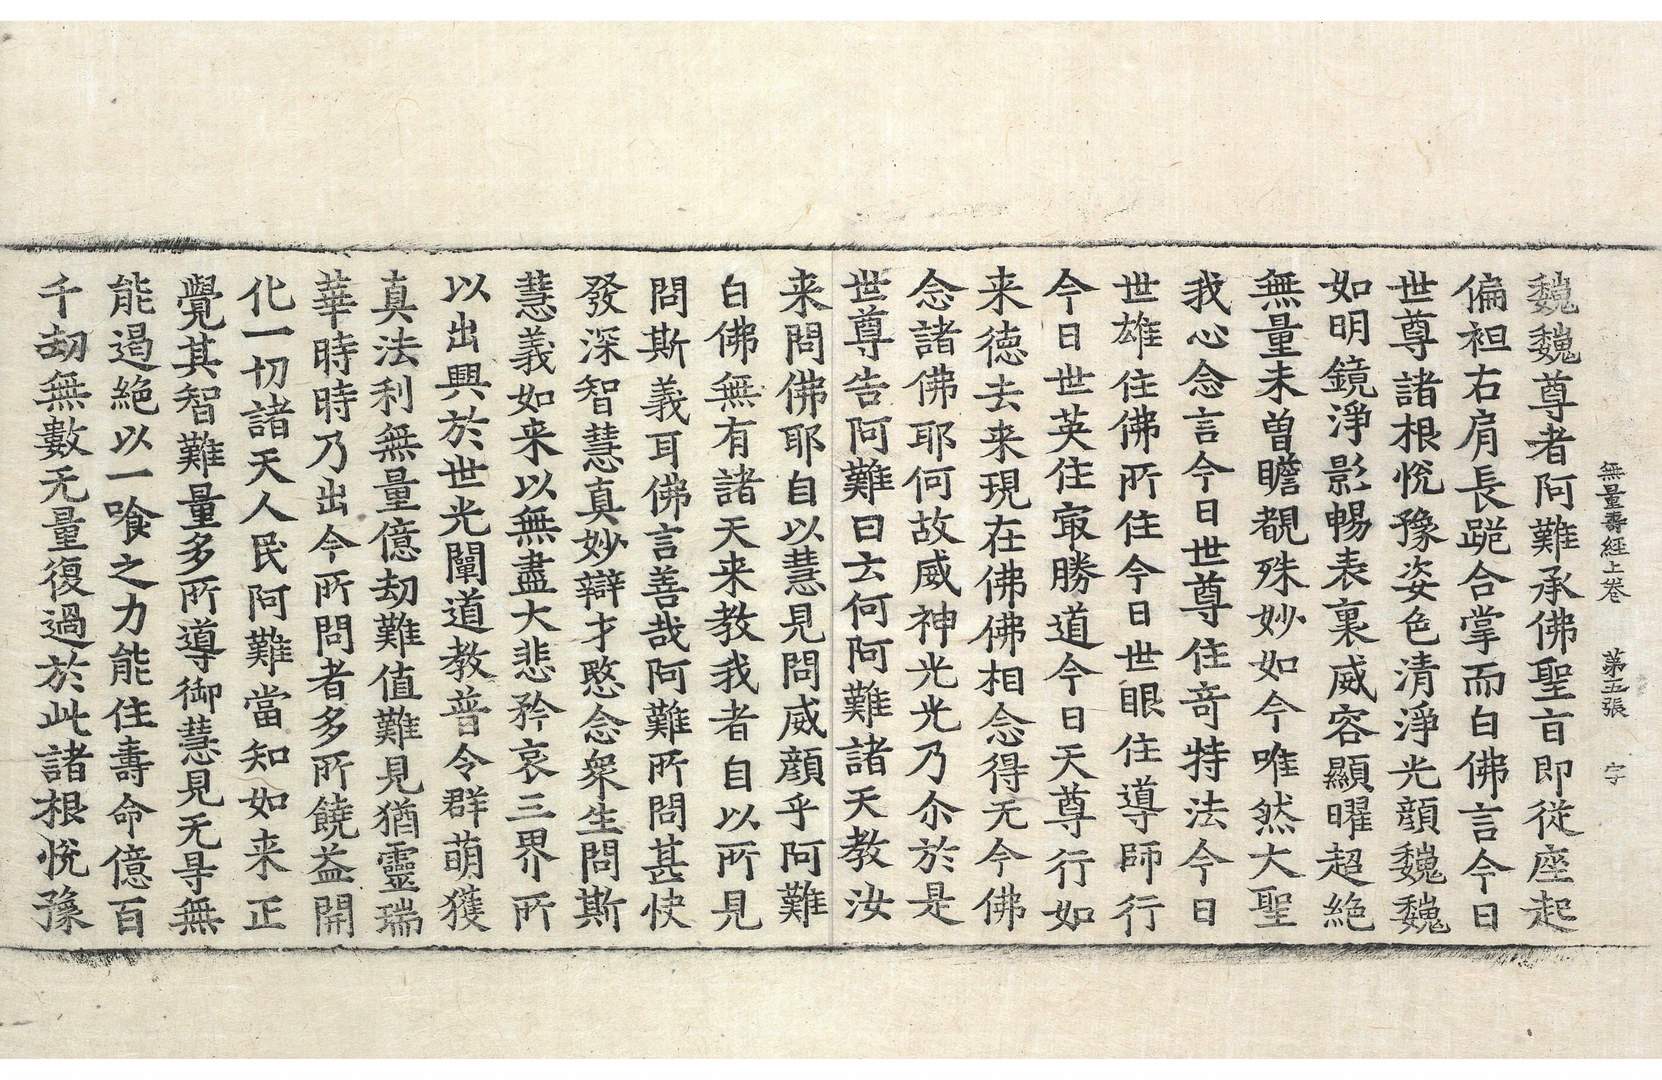 無量壽經上卷 第五張 字
魏魏尊者阿難承佛聖旨即從座起
偏袒右肩長跪合掌而白佛言今日
世尊諸根悅豫姿色清淨光顔魏魏
如明鏡淨影暢表裏威容顯曜超絕
無量未曾瞻覩殊妙如今唯然大聖
我心念言今日世尊住奇特法今日
世雄住佛所住今日世眼住導師行
今日世英住㝡勝道今日天尊行如
来德去来現在佛佛相念得无今佛
念諸佛耶何故威神光光乃尒於是
世尊告阿難曰云何阿難諸天教汝
来問佛耶自以慧見問威顔乎阿難
白佛無有諸天来教我者自以所見
問斯義耳佛言善哉阿難所問甚快
發深智慧真妙辯才愍念衆生問斯
慧義如来以無盡大悲矜哀三界所
以出興於世光闡道教普令群萌獲
真法利無量億劫難值難見猶靈瑞
華時時乃出今所問者多所饒益開
化一切諸天人民阿難當知如来正
覺其智難量多所導御慧見无㝵無
能遏絕以一喰之力能住壽命億百
千劫無數无量復過於此諸根悅豫